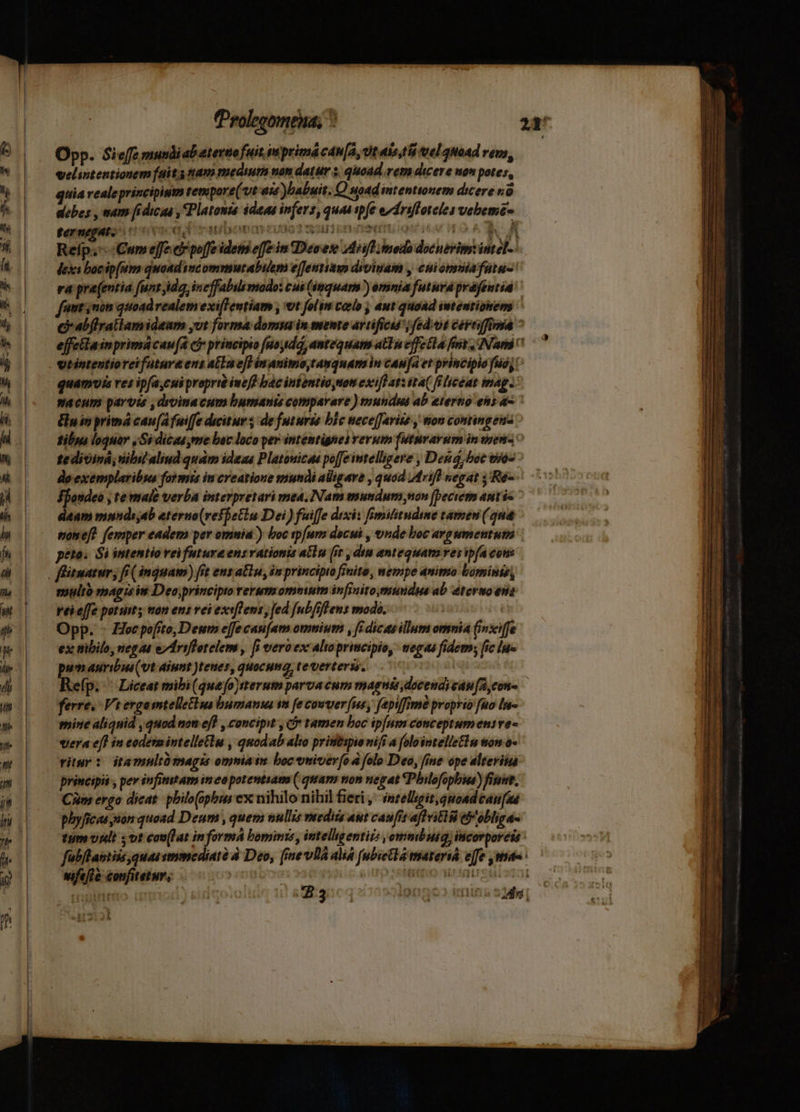 Prolegomena. 21
Opp. Si esse mundi ab aeterno fuit in primâ causâ, vt ais, tũ vel quoad rem,
vel intentionem fuit; nam medium non datur: quoad rem dicere non potes,
quia reale principium tempore (vt ais) habuit. Quoad intentionem dicere nõ
debes, nam si dicas, Platonis ideas infers, quas ipse Aristoteles vehemẽ-
ter negat.
Resp. Cum esse & posse idem esse in Deo ex Arist. modo docuerim: intel-
lexi hoc ipsum quoad incommutabilem essentiam divinam, cui omnia futu-
ra praesentia sunt, idq, ineffabili modo: cui (inquam) omnia futura praesentia
sunt, non quoad realem existentiam, vt sol in coelo, aut quoad intentionem
& abstractam ideam, vt forma domus in mente artificis, sed vt certissima
effecta in primâ causâ & principio suo, idq, antequam actu effecta sint. Nam
vt intentio rei futurae ens actu est in animo, tanquam in causa et principio suo,
quamvis res ipsa, cui propriè inest haec intentio, non existat: ita (si liceat mag-
na cum parvis, divina cum humanis comparare) mundus ab aeterno ens a-
ctu in primâ causâ fuisse dicitur; de futuris hîc necessariis, non contingen-
tibus loquor. Si dicas, me hoc loco per intentionẽ rerum futurarum in men-
te divinâ, nihil aliud quàm ideas Platonicas posse intelligere, Deũq, hoc mo-
do exemplaribus formis in creatione mundi alligare, quod Arist. negat; Re-
spondeo, te male verba interpretari mea. Nam mundum, non speciem aut i-
deam mundi, ab aeterno (respectu Dei) fuisse dixi: similitudine tamen (quae
non est semper eadem per omnia) hoc ipsum docui, vnde hoc argumentum
peto. Si intentio rei futurae ens rationis actu sit, diu antequam res ipsa con-
stituatur; si (inquam) sit ens actu, in principio finito, nempe animo hominis,
multò magis in Deo, principio rerum omnium infinito, mundus ab aeterno ens
rei esse potuit; non ens rei existens, sed subsistens modo.
Opp. Hoc posito, Deum esse causam omnium, si dicas illum omnia finxisse
ex nihilo, negas Aristotelem, si vero ex alio principio, negas fidem; sic lu-
pum auribus (vt aiunt) tenes, quocunq, te verteris.
Resp. Liceat mihi (quaeso) iterum parva cum magnis, docendi causâ, con-
ferre. Vt ergo intellectus humanus in se conversus, sapissimè proprio suo lu-
mine aliquid, quod non est, concipit, & tamen hoc ipsum conceptum ens re-
vera est in eodem intellectu, quod ab alio principio nisi a solo intellectu non o-
ritur: ita multò magis omnia in hoc vniverso à solo Deo, sine ope alterius
principii, per infinitam in eo potentiam (quam non negat Philosophus) fiunt.
Cùm ergo dicat philosophus ex nihilo nihil fieri, intelligit, quoad causas
physicas, non quoad Deum, quem nullis mediis aut causis astrictũ & obliga-
tum vult; vt constat in formâ hominis, intelligentiis, omnibusq, incorporeis
substantiis, quas immediatè à Deo, sine vllâ aliâ subiectâ materiâ esse, ma-
nifestè confitetur.
B 3